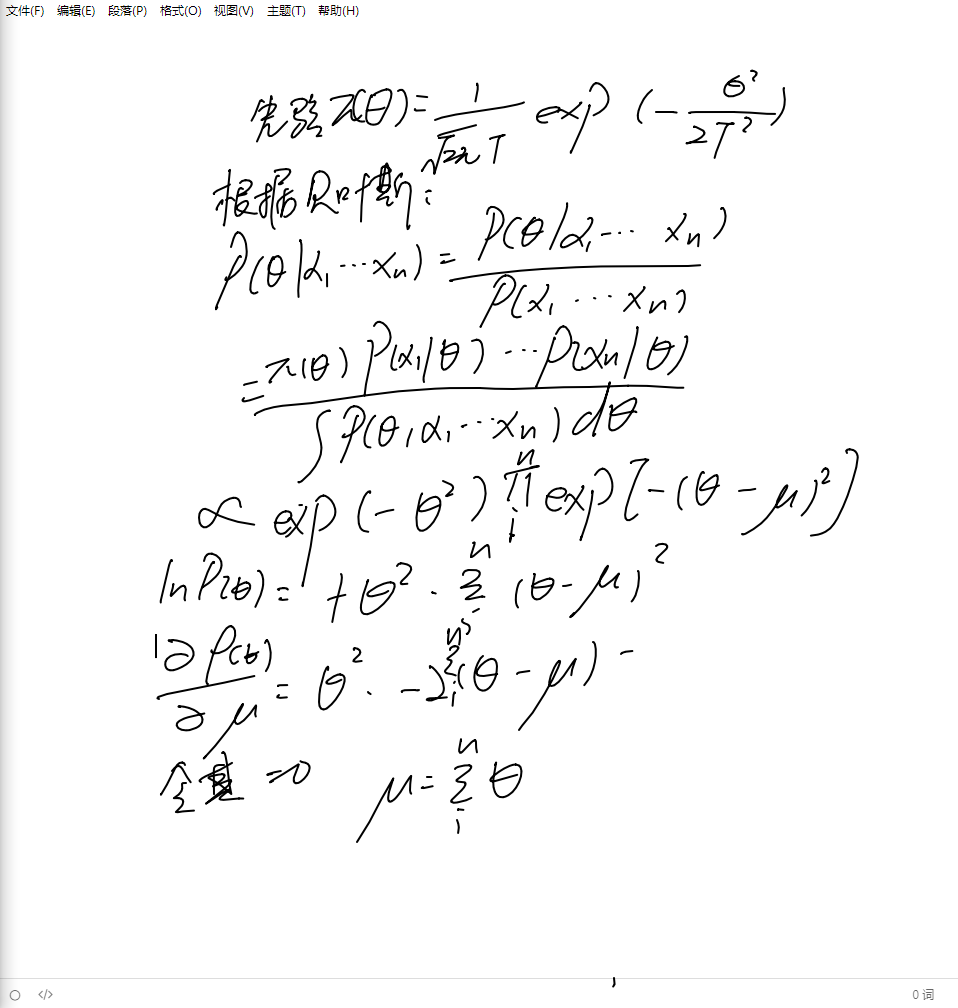 文件(F) 编辑(E) 段落(P) 格式(O) 视图(V) 主题(T) 帮助(H)
先验 π(θ) = 1/(√2π T) exp (-θ²/(2T²))
根据贝叶斯:
P(θ|x₁ ⋯ xₙ) = P(θ|x₁ ⋯ xₙ) / P(x₁ ⋯ xₙ)
= π(θ) P(x₁|θ) ⋯ P(xₙ|θ) / ∫ P(θ, x₁ ⋯ xₙ) dθ
∝ exp (-θ²) ∏ᵢⁿ exp [-(θ - μ)²]
ln P(θ) = +θ² · Σⁿ (θ - μ)²
∂P(θ)/∂μ = θ² · -2 Σᵢⁿ (θ - μ) -
令 =0 μ = Σᵢⁿ θ
</> 0 词